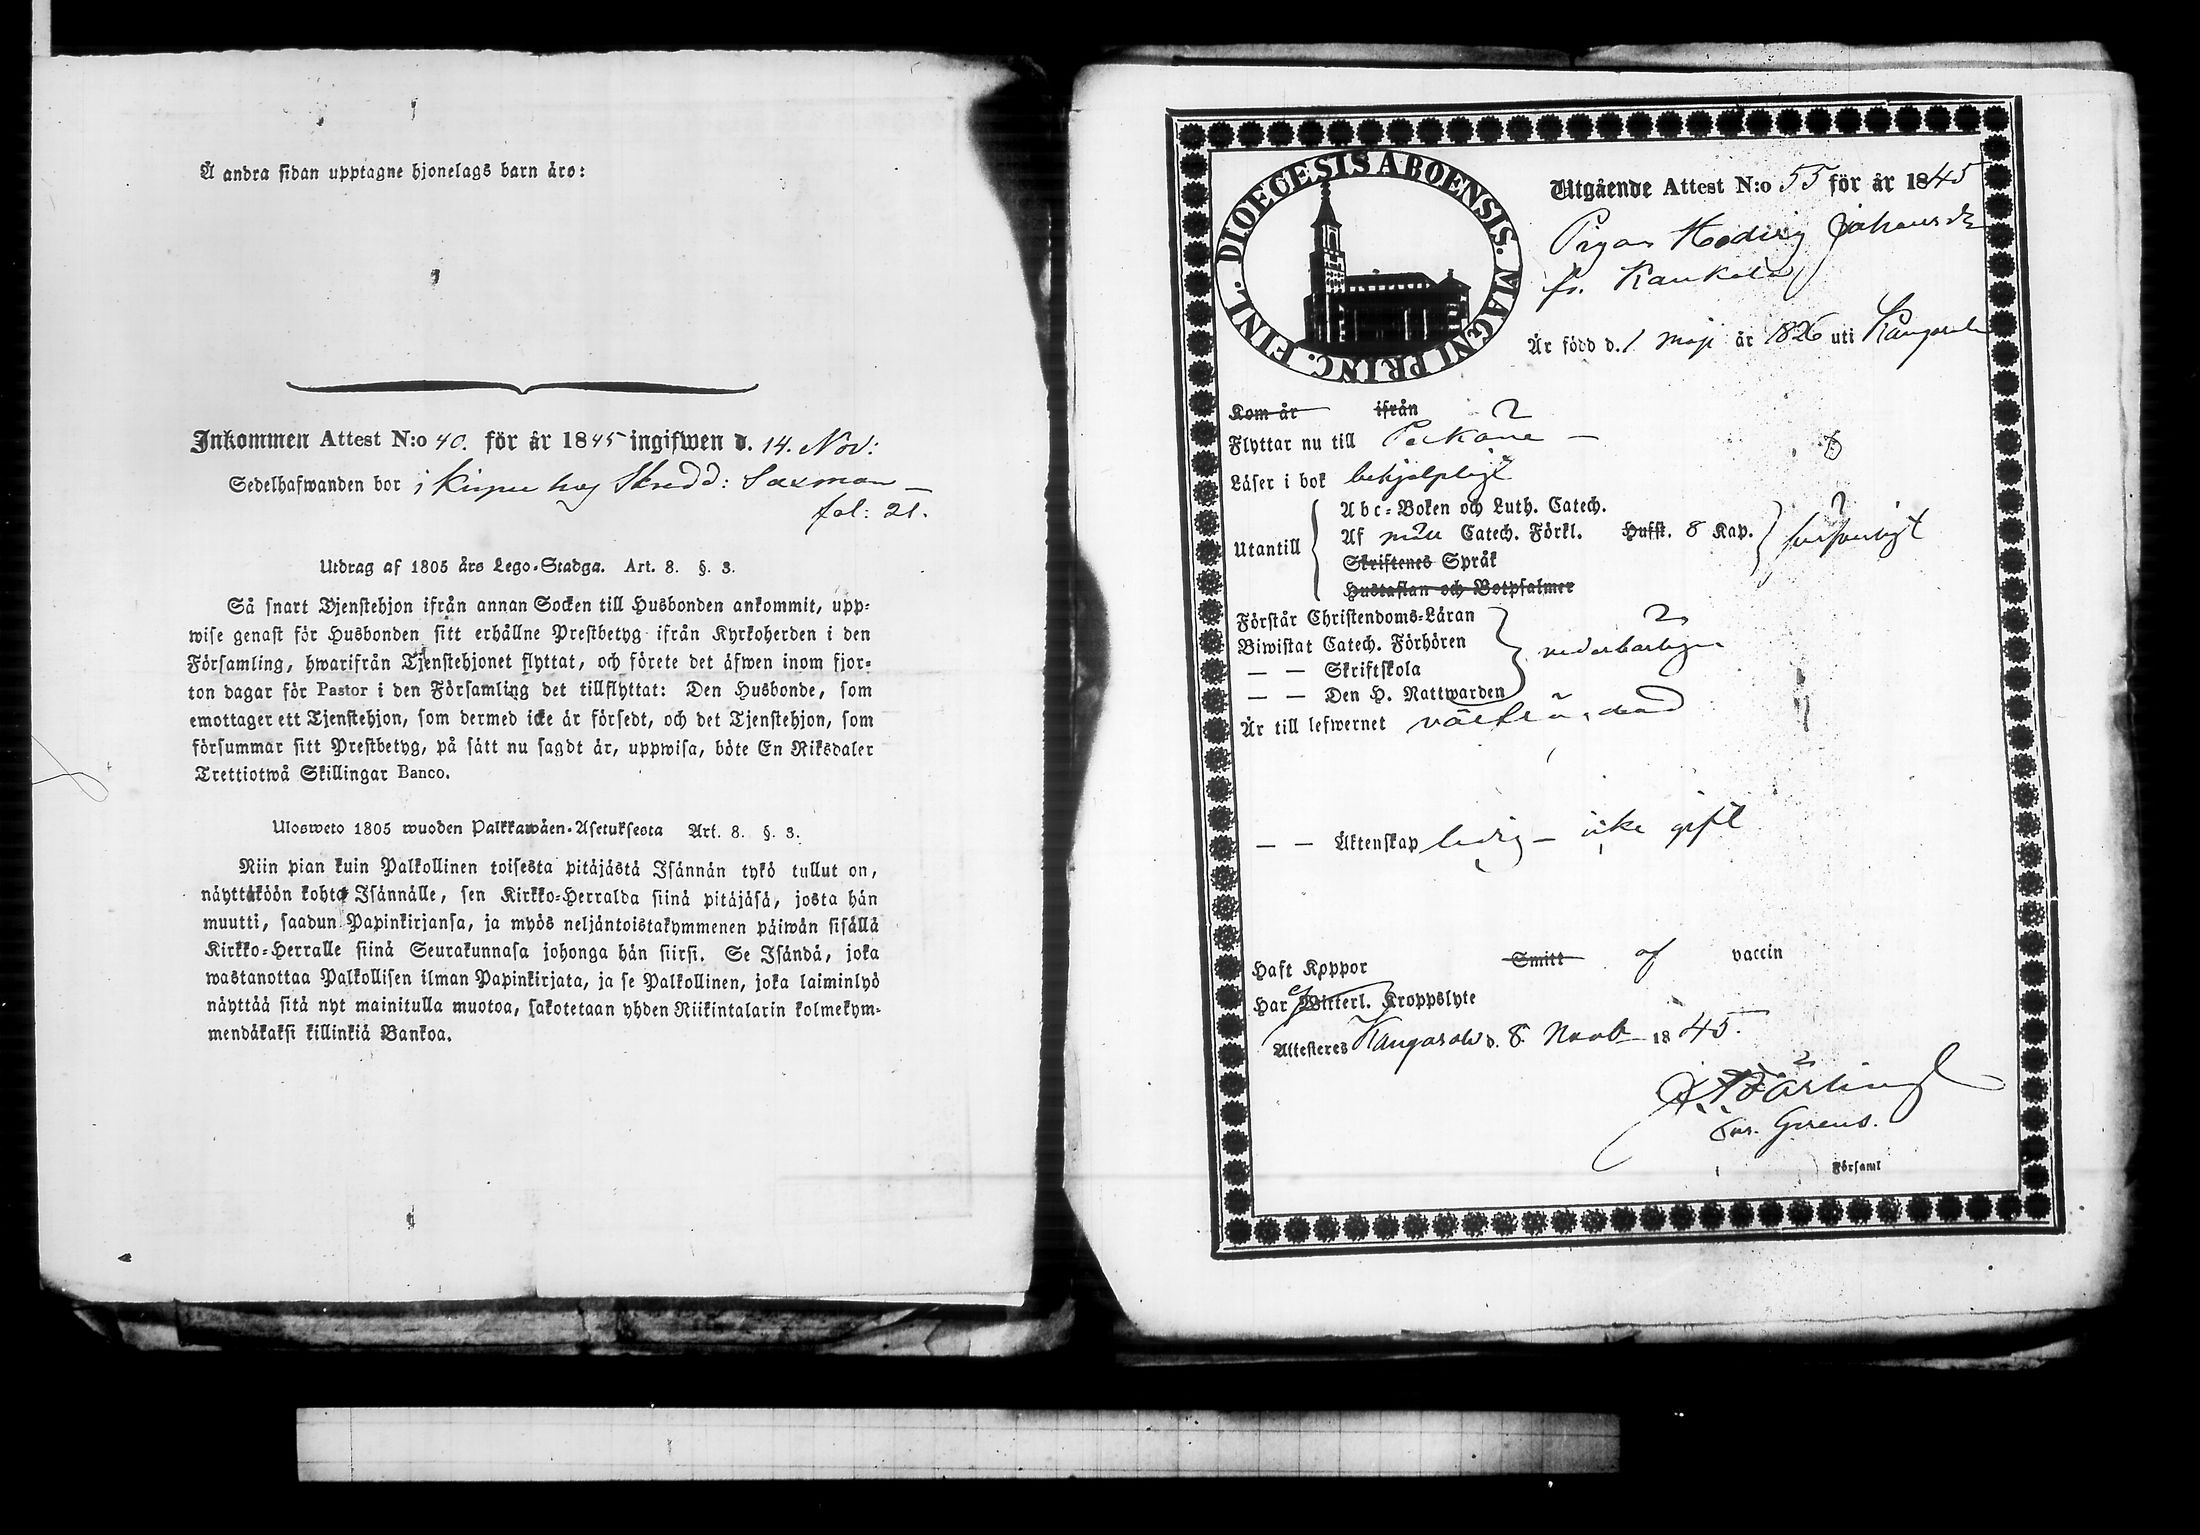 Å andra sidan upptagne hjonelags barn äro:
Inkommen Attest N:o 40. för år 1845 ingifwen d. 14. Nov:
Sedelhafwanden bor i hos Skredd: Saxman
fol: 21.
Utdrag af 1805 års Lego-Stadga. Art. 8. §. 3.
Så snart Tjenstehjon ifrån annan Socken till Husbonden ankommit, upp-
wise genast för Husbonden sitt erhållne Prestbetyg ifrån Kyrkoherden i den
Församling, hwarifrån Tjenstehjonet flyttat, och förete det äfwen inom fjor-
ton dagar för Pastor i den Församling det tillflyttat: Den Husbonde, som
emottager ett Tjenstehjon, som dermed icke är försedt, och det Tjenstehjon, som
försummar sitt Prestbetyg, på sätt nu sagdt är, uppwisa, böte En Riksdaler
Trettiotwå Skillingar Banco.
Ulosweto 1805 wuoden Palkkawäen-Asetuksesta Art. 8. §. 3.
Niin pian kuin Palkollinen toisesta pitäjästä Isännän tykö tullut on,
näyttäköön kohta Isännälle, sen Kirkko-Herralda siinä pitäjäsä, josta hän
muutti, saadun Papinkirjansa, ja myös neljäntoistakymmenen päiwän sisällä
Kirkko-Herralle siinä Seurakunnasa johonga hän siirsi. Se Isändä, joka
wastanottaa Palkollisen ilman Papinkirjata, ja se Palkollinen, joka laiminlyö
näyttää sitä nyt mainitulla muotoa, sakotetaan yhden Riikintalarin kolmekym-
mendäkaksi killinkiä Bankoa.
DIOECESIS ABOENSIS. MAGNI PRINC. FINL.
Utgående Attest N:o 55 för år 1845
Pigan Hedvig Johansdr
fr. Kaukala
Är född d. 1 Maji år 1826 uti Kangasala
Kom år ifrån
Flyttar nu till Pelkäne
Läser i bok behjelpligt
Utantill
Abc-Boken och Luth. Catech.
Af Catech. Förkl. Hufst. 8 Kap.
Skriftenes Språk
Hustaflan och Botpsalmer
försvarligt
Förstår Christendoms-Läran
Biwistat Catech. Förhören
— — Skriftskola
— — Den H. Nattwarden
vederbörligen
Är till lefwernet välfrägdad
— — Äktenskap ledig — icke gift
Haft Koppor Smitt af vaccin
Har ej Witterl. Kroppslyte
Attesteras Kangasala d. 8 Novb 1845.
Församl